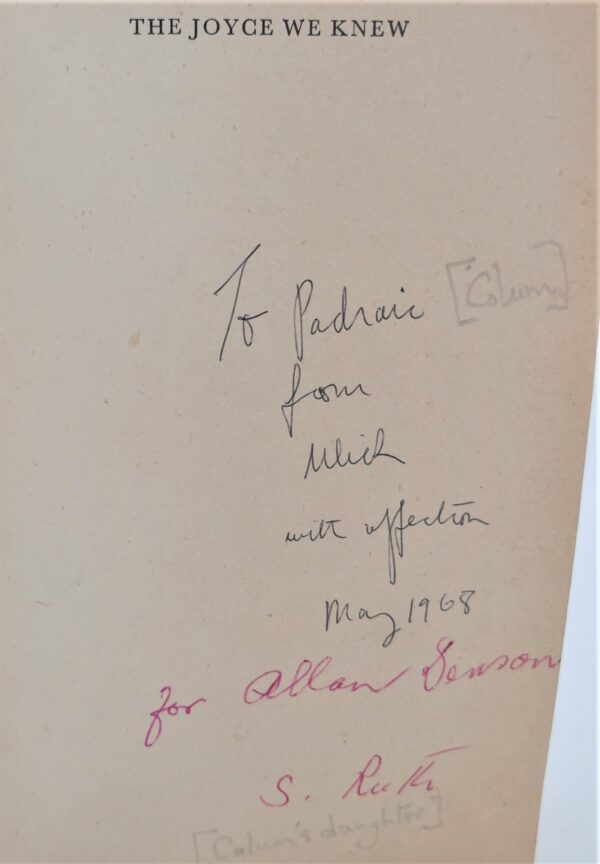 THE JOYCE WE KNEW
To Padraic [Colum]
from
Ulick
with affection
May 1968
for Allan Denson
S. Ruth
[Colum's daughter]